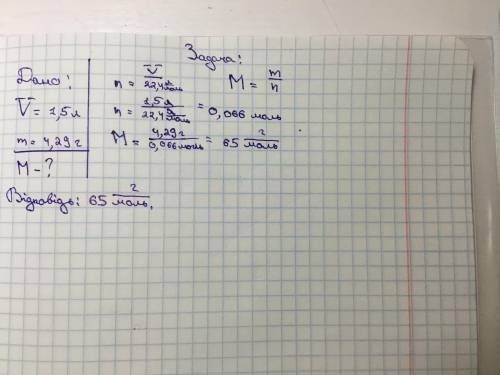 Задача:
Дано:
V = 1,5 л
m = 4,29 г
M - ?
n = V / 22,4 л/моль
M = m / n
n = 1,5 л / 22,4 л/моль = 0,066 моль
M = 4,29 г / 0,066 моль = 65 г/моль
Відповідь: 65 г/моль.